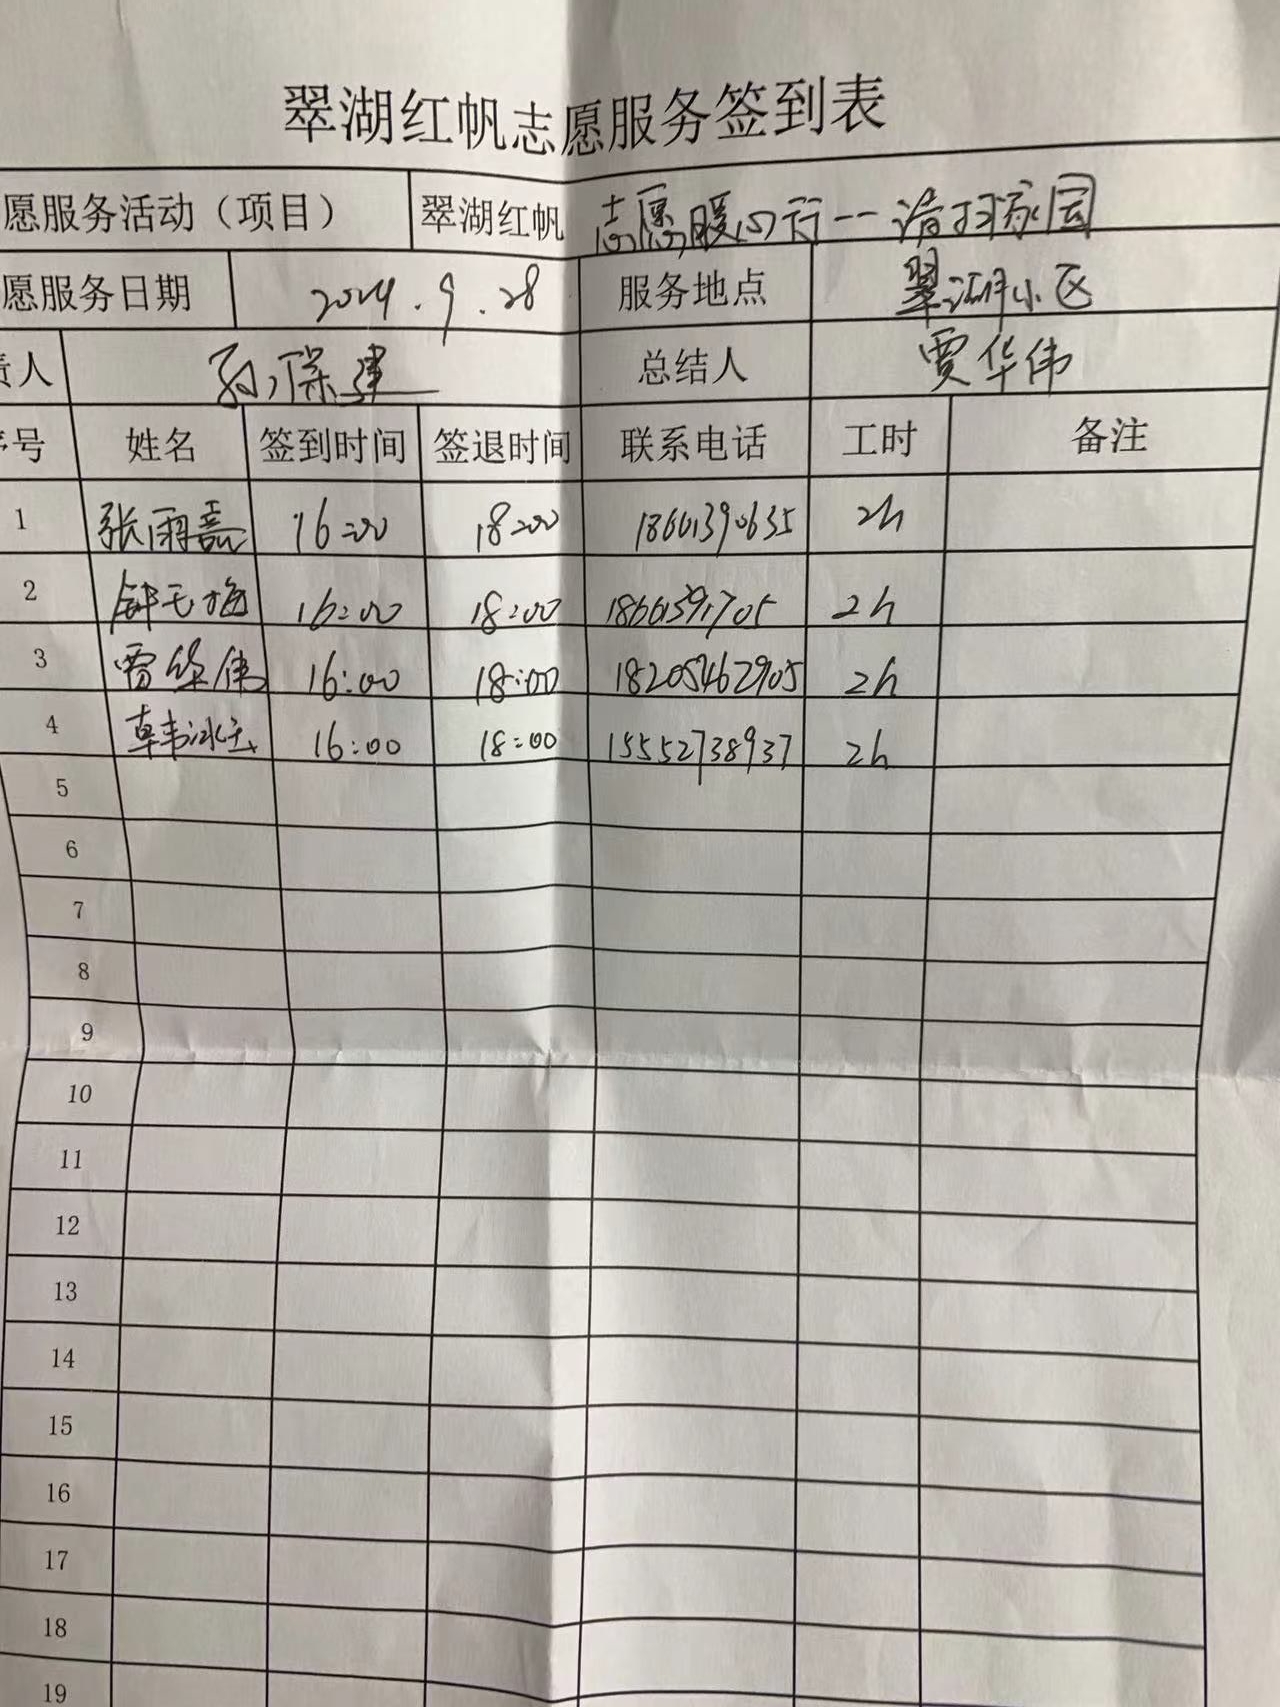 翠湖红帆志愿服务签到表
愿服务活动（项目） 翠湖红帆 志愿暖心行--清扫家园
愿服务日期 2024.9.28 服务地点 翠湖小区
责人 孙保建 总结人 贾华伟
序号 姓名 签到时间 签退时间 联系电话 工时 备注
1 张雨 16:00 18:00 18661390635 2h
2 16:00 18:00 18661391705 2h
3 贾华伟 16:00 18:00 18205462905 2h
4 16:00 18:00 15552738937 2h
5
6
7
8
9
10
11
12
13
14
15
16
17
18
19